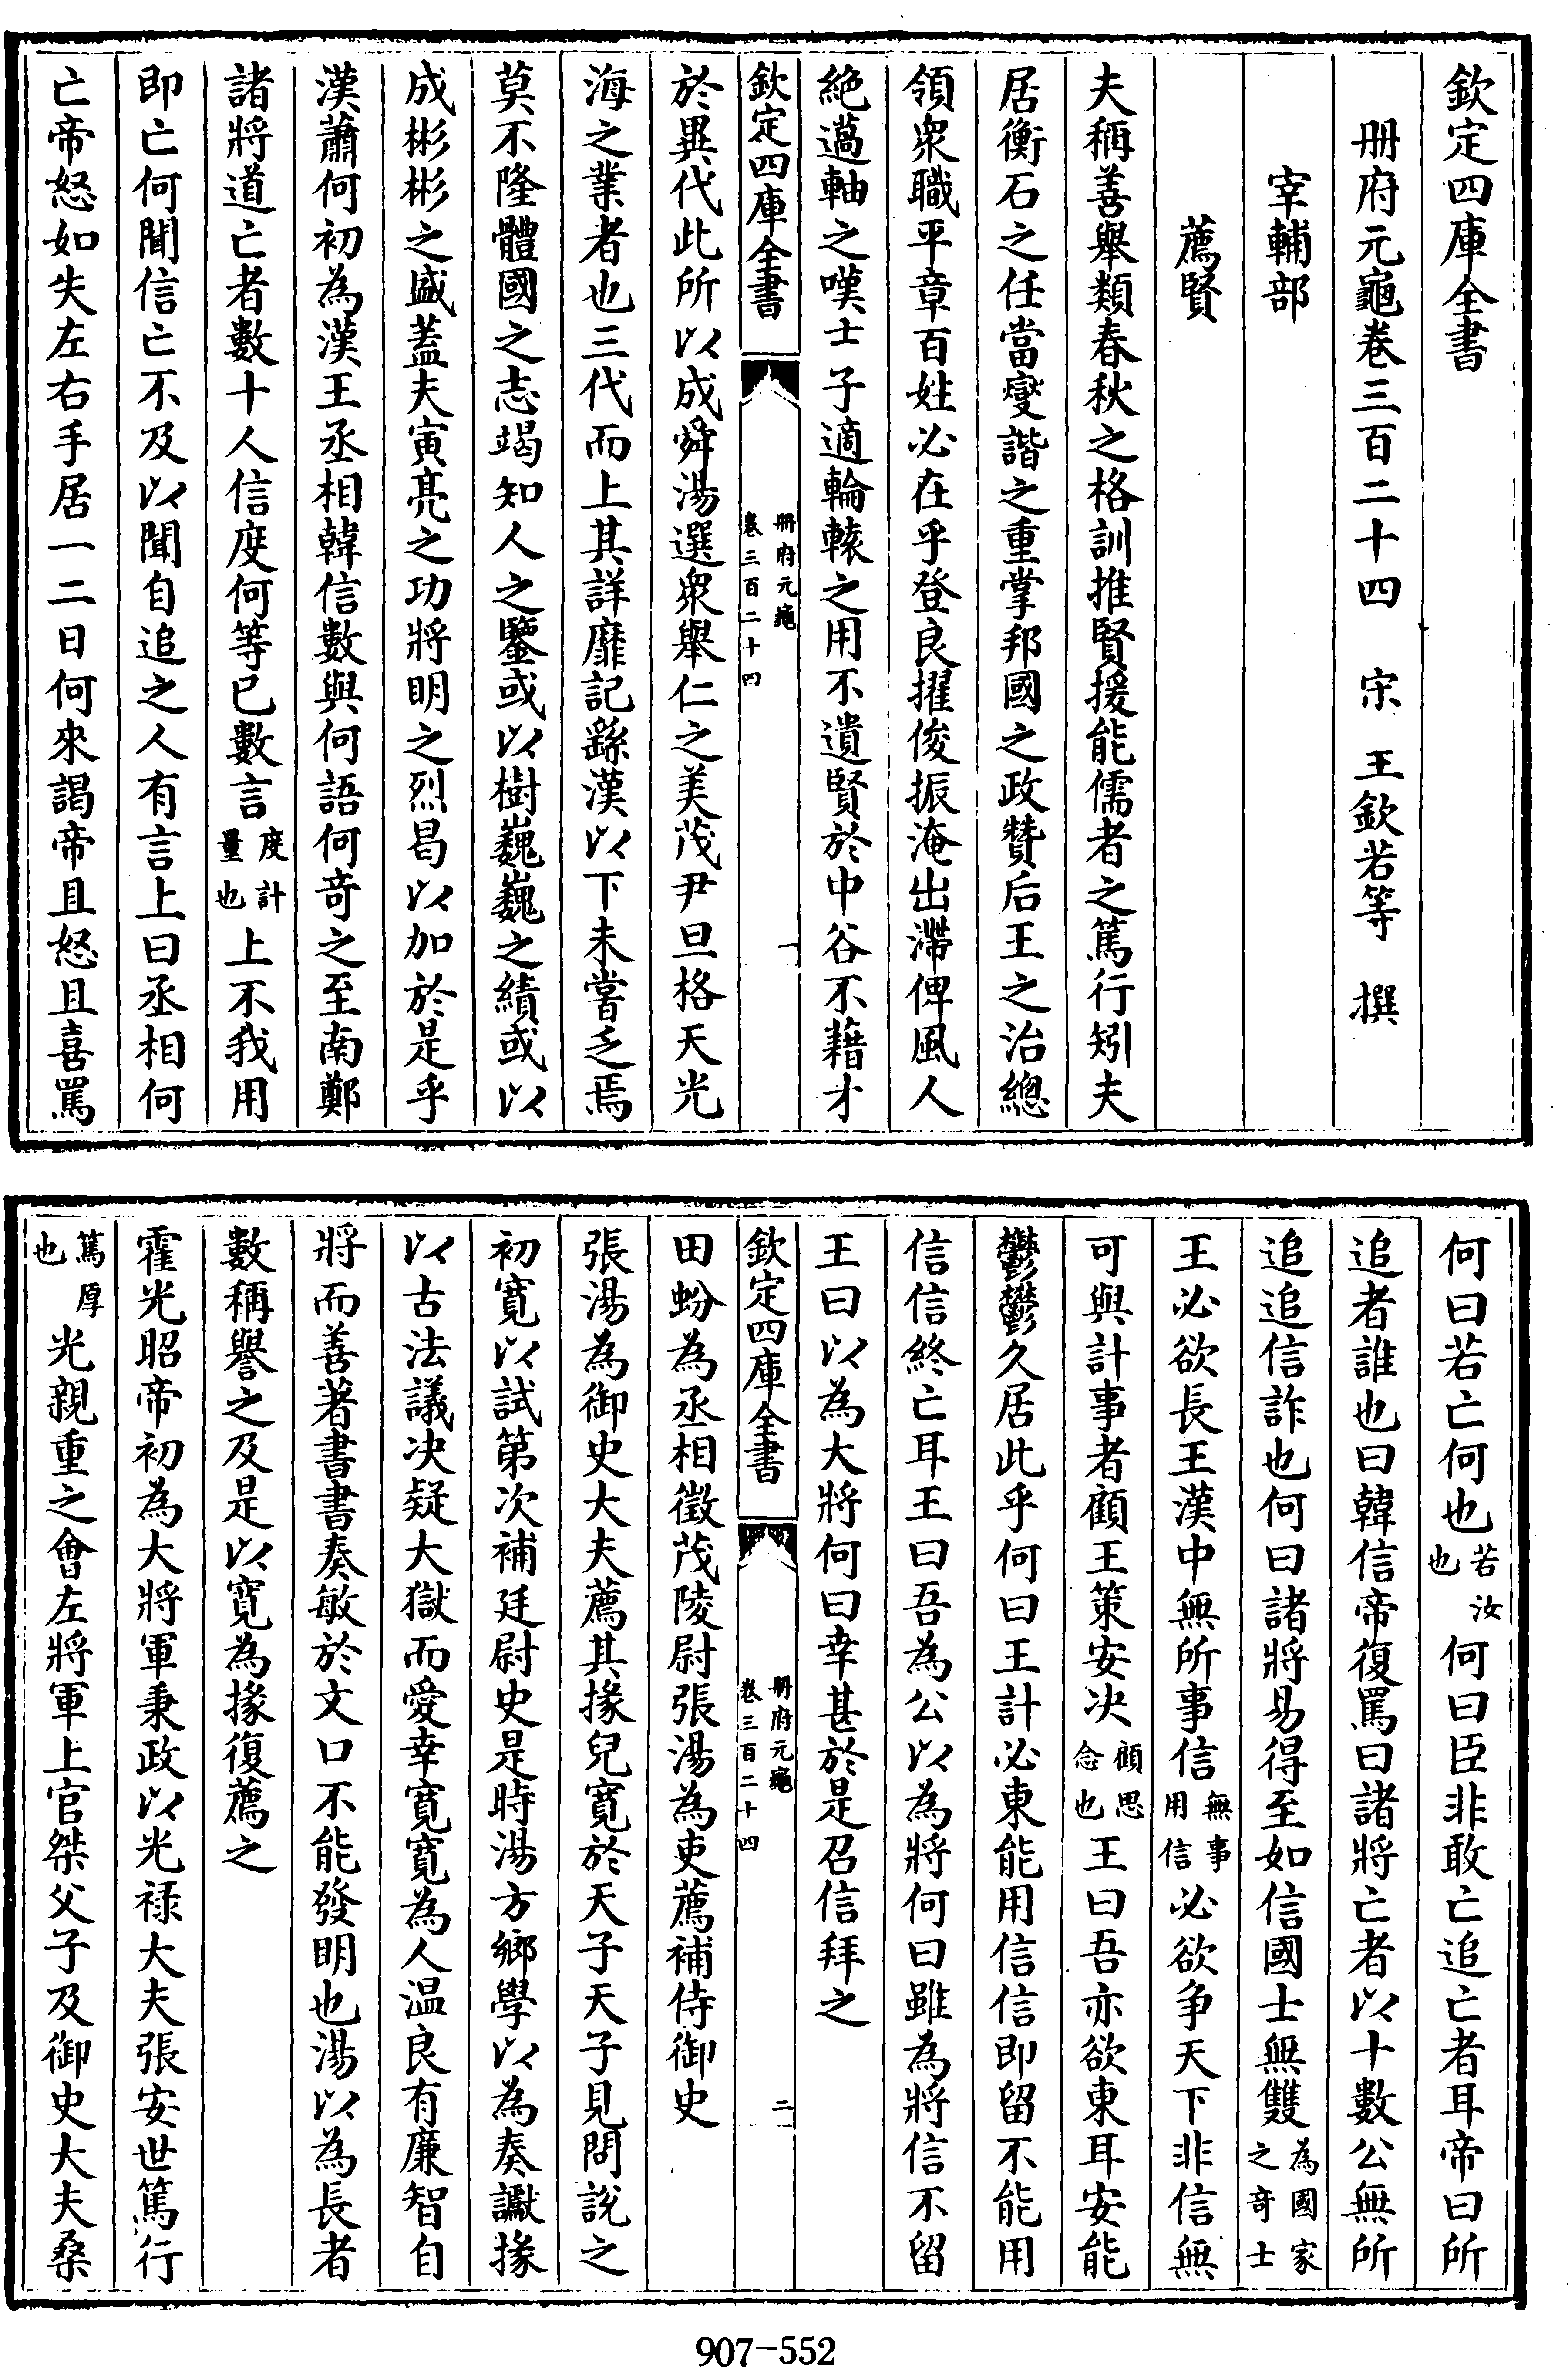 欽定四庫全書
册府元龜卷三百二十四　宋　王欽若等　撰
宰輔部
薦賢
夫稱善舉類春秋之格訓推賢援能儒者之篤行矧夫
居衡石之任當燮諧之重掌邦國之政贊后王之治總
領衆職平章百姓必在乎登良擢俊振淹出滯俾風人
絶薖軸之嘆士子適輪轅之用不遺賢於中谷不藉才
欽定四庫全書
册府元龜
卷三百二十四
一
於異代此所以成舜湯選衆舉仁之美茂尹旦格天光
海之業者也三代而上其詳靡記繇漢以下未嘗乏焉
莫不隆體國之志竭知人之鑒或以樹巍巍之績或以
成彬彬之盛蓋夫寅亮之功將明之烈曷以加於是乎
漢蕭何初為漢王丞相韓信數與何語何竒之至南鄭
諸將道亡者數十人信度何等已數言度計量也上不我用
即亡何聞信亡不及以聞自追之人有言上曰丞相何
亡帝怒如失左右手居一二日何來謁帝且怒且喜罵
何曰若亡何也若汝也何曰臣非敢亡追亡者耳帝曰所
追者誰也曰韓信帝復罵曰諸將亡者以十數公無所
追追信詐也何曰諸將易得至如信國士無雙為國家之竒士
王必欲長王漢中無所事信無事用信必欲争天下非信無
可與計事者顧王策安决顧思念也王曰吾亦欲東耳安能
鬱鬱久居此乎何曰王計必東能用信信即留不能用
信信終亡耳王曰吾為公以為將何曰雖為將信不留
王曰以為大將何曰幸甚於是召信拜之
欽定四庫全書
册府元龜
卷三百二十四
二
田蚡為丞相徵茂陵尉張湯為吏薦補侍御史
張湯為御史大夫薦其掾兒寛於天子天子見問說之
初寛以試第次補廷尉史是時湯方鄉學以為奏讞掾
以古法議决疑大獄而愛幸寛寛為人温良有廉智自
將而善著書書奏敏於文口不能發明也湯以為長者
數稱譽之及是以寛為掾復薦之
霍光昭帝初為大將軍秉政以光禄大夫張安世篤行
篤厚也光親重之會左將軍上官桀父子及御史大夫桑
907-552